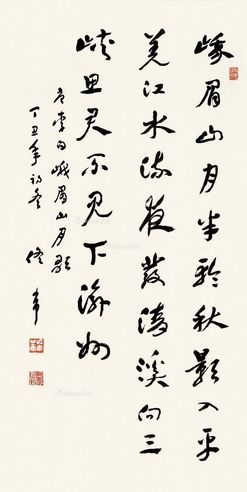 峨眉山月半輪秋影入平
羌江水流夜發清溪向三
峽思君不見下渝州
唐李白峨眉山月歌
丁丑年初冬 佟韋